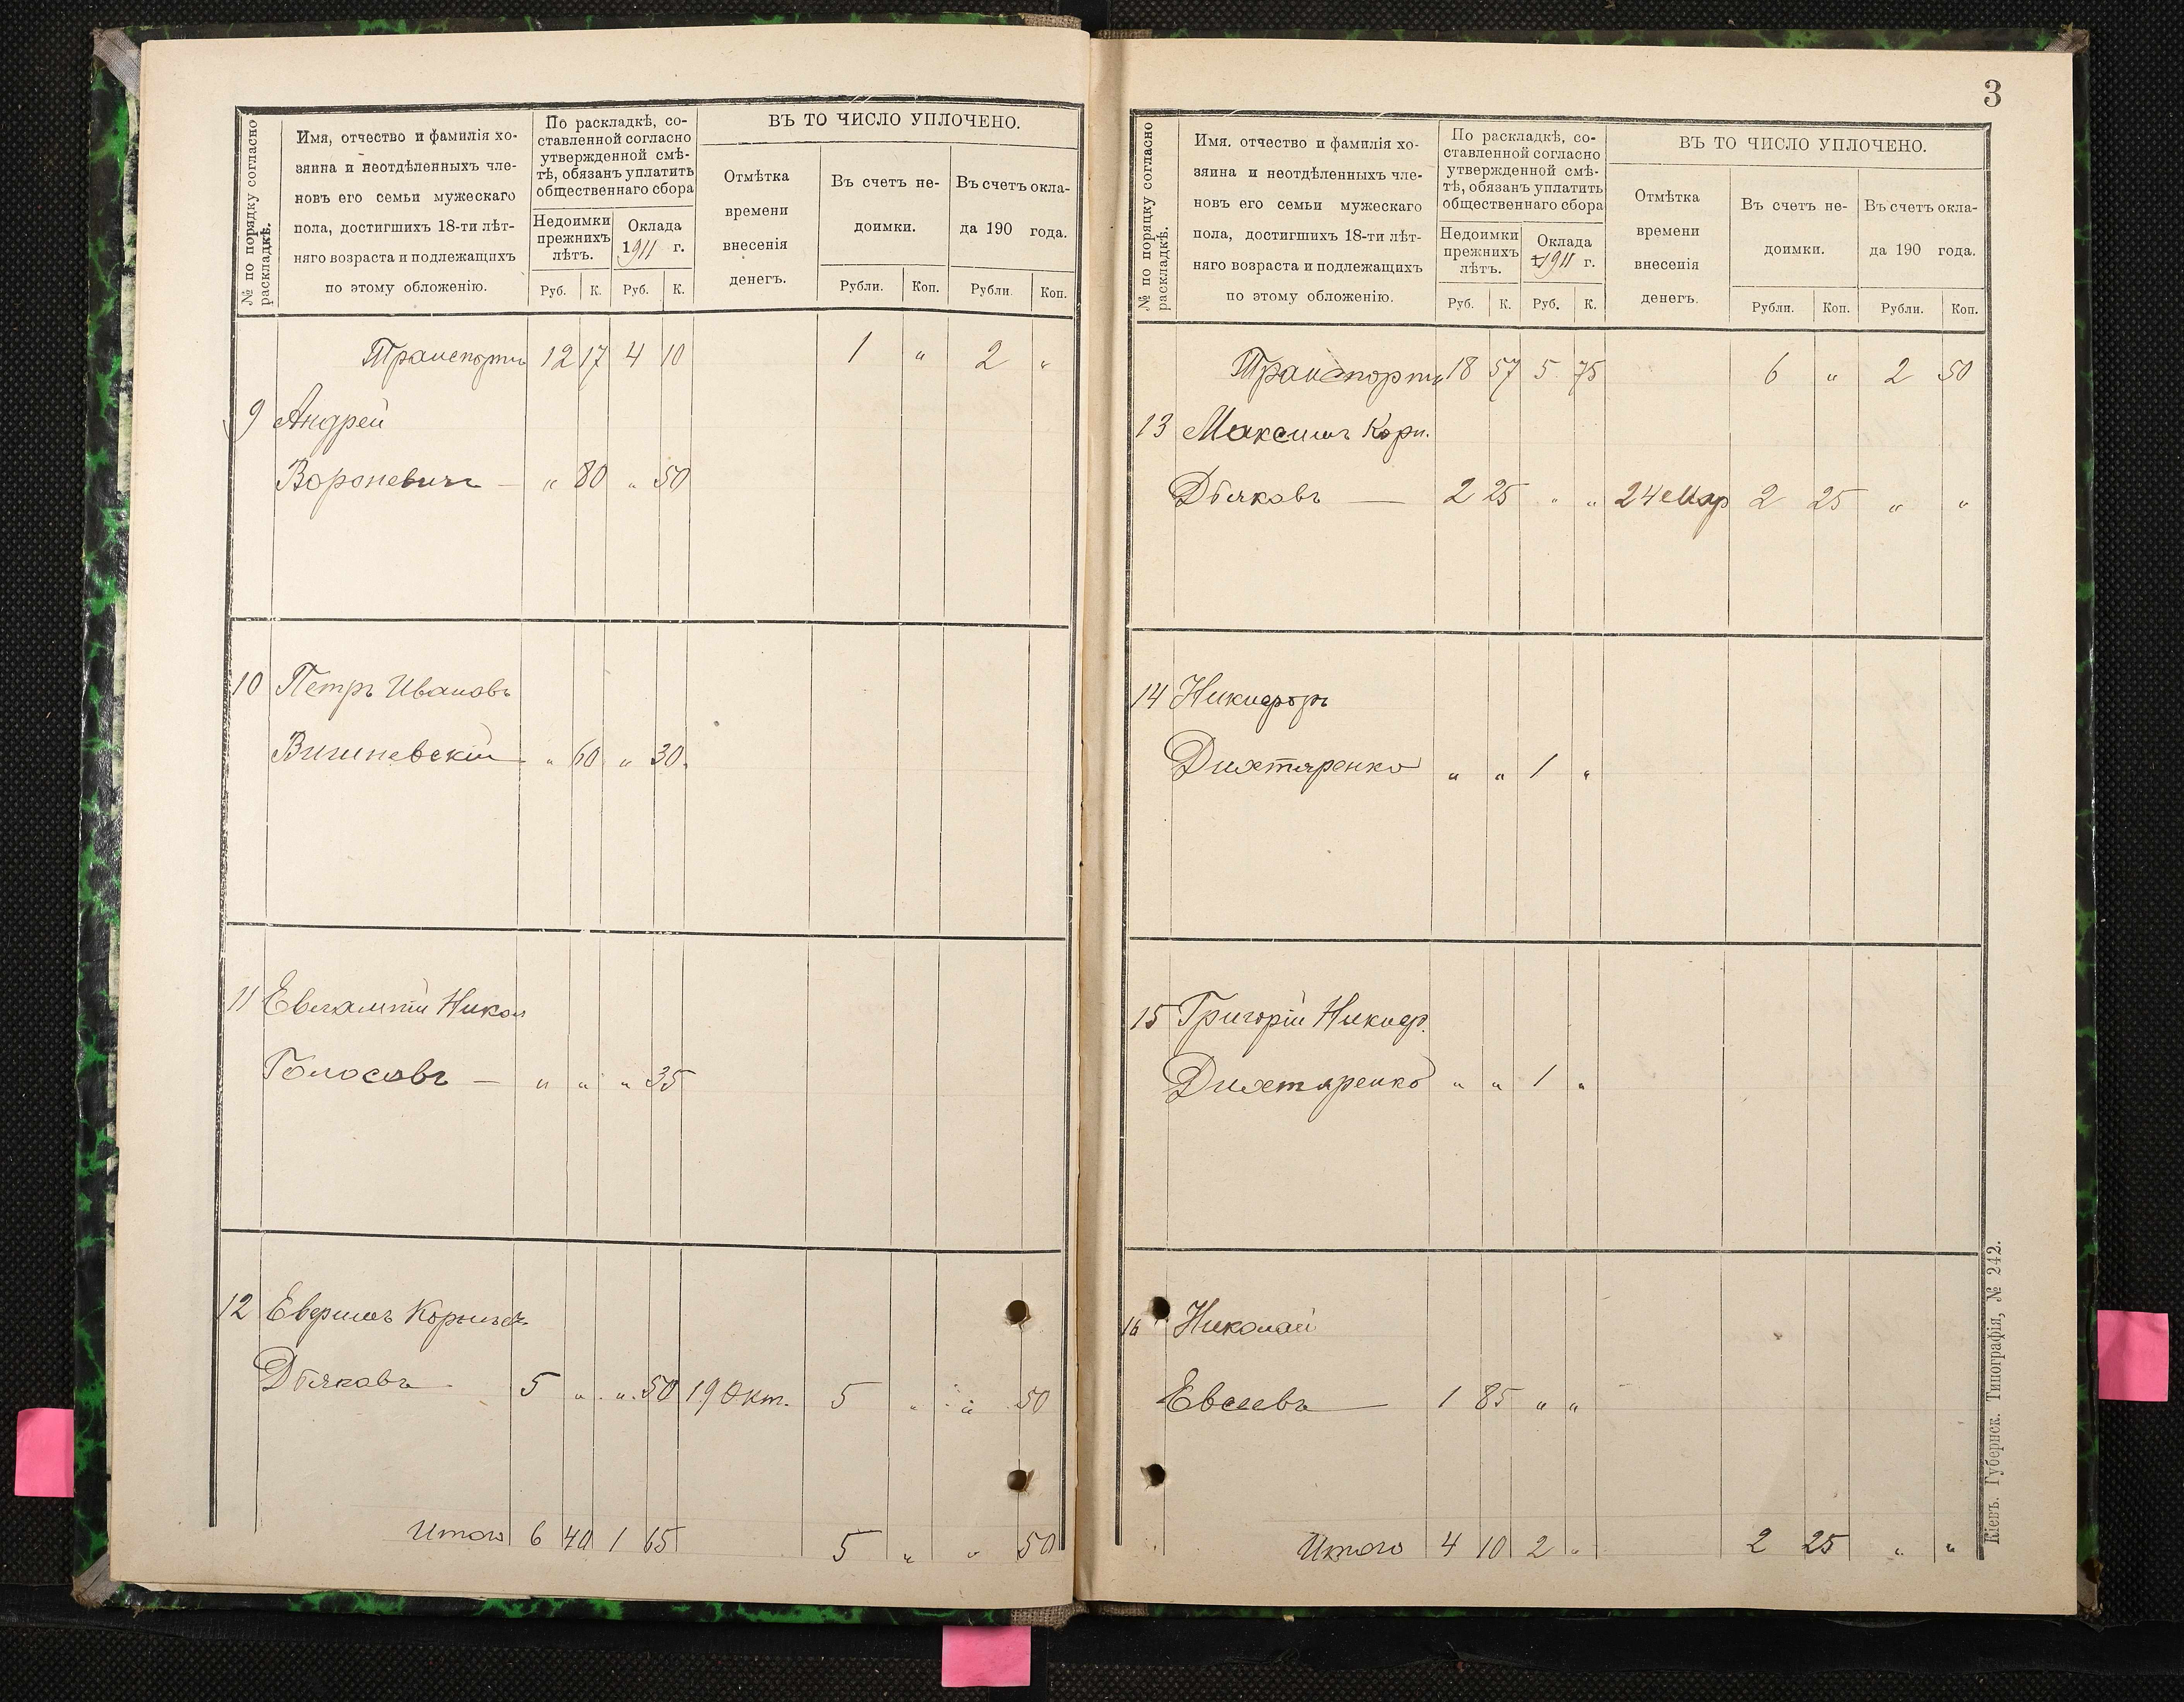 № по порядку согласно раскладкѣ.
Имя, отчество и фамилія хо-
зяина и неотдѣленныхъ чле-
новъ его семьи мужескаго
пола, достигшихъ 18-ти лѣт-
няго возраста и подлежащихъ
по этому обложенію.
По раскладкѣ, со-
ставленной согласно
утвержденной смѣ-
тѣ, обязанъ уплатить
общественнаго сбора
Недоимки
прежнихъ
лѣтъ.
Оклада
1911 г.
Руб. К. Руб. К.
ВЪ ТО ЧИСЛО УПЛОЧЕНО.
Отмѣтка
времени
внесенія
денегъ.
Въ счетъ не-
доимки.
Въ счетъ окла-
да 190 года.
Рубли. Коп. Рубли. Коп.
Транспортъ 12 17 4 10 1 " 2 "
9 Андрей
Вороневичъ — " 80 " 50
10 Петръ Ивановъ
Вишневскій " 60 " 30.
11 Евлампій Никол
Голосовъ — " " " 35
12 Ефримъ Корнѣев.
Дьяковъ 5 " " 50 19 Окт. 5 " " 50
Итого 6 40 1 65 5 " " 50
3
№ по порядку согласно раскладкѣ.
Имя, отчество и фамилія хо-
зяина и неотдѣленныхъ чле-
новъ его семьи мужескаго
пола, достигшихъ 18-ти лѣт-
няго возраста и подлежащихъ
по этому обложенію.
По раскладкѣ, со-
ставленной согласно
утвержденной смѣ-
тѣ, обязанъ уплатить
общественнаго сбора
Недоимки
прежнихъ
лѣтъ.
Оклада
1911 г.
Руб. К. Руб. К.
ВЪ ТО ЧИСЛО УПЛОЧЕНО.
Отмѣтка
времени
внесенія
денегъ.
Въ счетъ не-
доимки.
Въ счетъ окла-
да 190 года.
Рубли. Коп. Рубли. Коп.
Транспортъ 18 57 5 75 6 " 2 50
13 Максимъ Корн.
Дьяковъ — 2 25 " " 24 Мар 2 25 " "
14 Никифоръ
Дихтяренко " " 1 "
15 Григорій Никиф.
Дихтяренко " " 1 "
16 Николай
Евсеевъ — 1 85 " "
Итого 4 10 2 " 2 25 " "
Кіевъ. Губернск. Типографія, № 242.